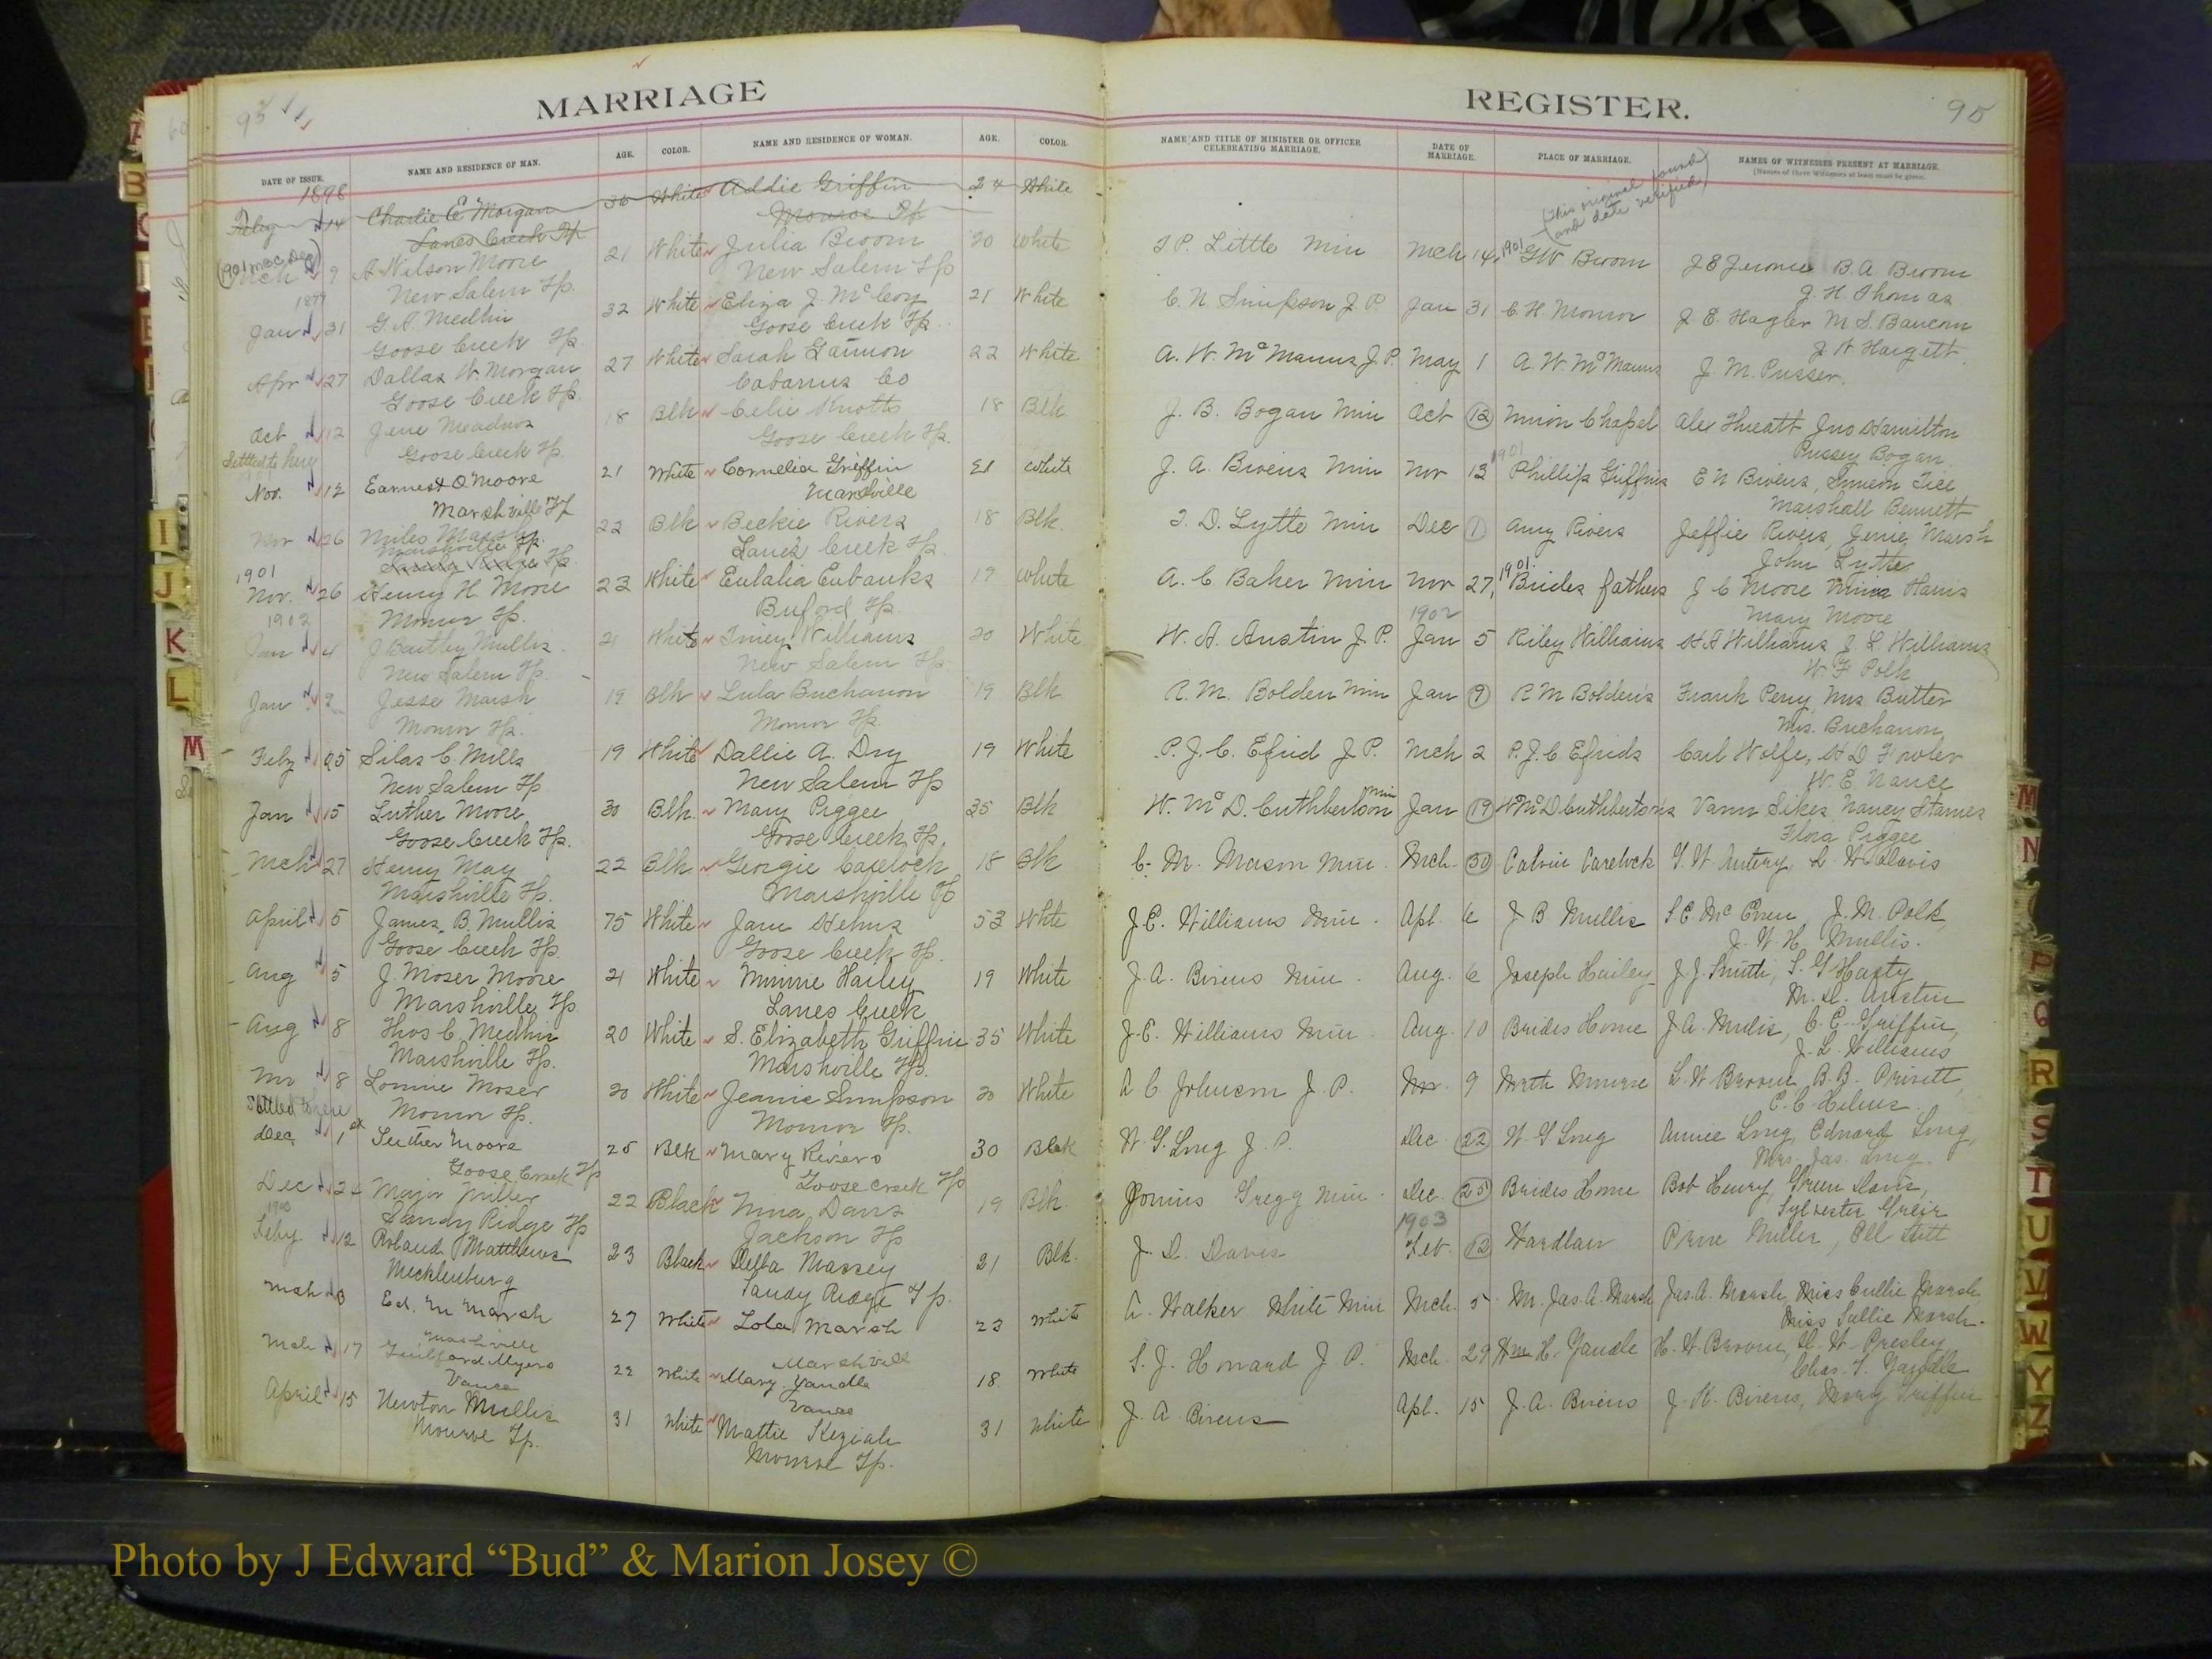 93
MARRIAGE
DATE OF ISSUE.
NAME AND RESIDENCE OF MAN.
AGE.
COLOR.
NAME AND RESIDENCE OF WOMAN.
AGE.
COLOR.
REGISTER.
95
NAME AND TITLE OF MINISTER OR OFFICER CELEBRATING MARRIAGE.
DATE OF MARRIAGE.
PLACE OF MARRIAGE.
NAMES OF WITNESSES PRESENT AT MARRIAGE.
(Names of three Witnesses at least must be given.
(This original found and date verified)
1898
Feby 14 Charlie E Morgan 36 White Addie Griffin 24 White
Lanes Creek Tp Monroe Tp
9 A Nelson Moore 21 White Julia Broom 20 White J P. Little Min Mch 14, 1901 GW Broom J E Jerome B. A Broom
New Salem Tp. New Salem Tp J. H. Thomas
1899
Jan 31 G. A. Medlin 32 White Eliza J. McCoy 21 White C. N. Simpson J. P. Jan 31 C H. Monroe J. E. Hagler M. S. Baucom
Goose Creek Tp. Goose Creek Tp. J N Hargett
Apr 27 Dallas W Morgan 27 White Sarah 22 White A. W. McManus J. P. May 1 A. W. McManus J. M. Pusser.
Goose Creek Tp. Cabarrus Co
Oct 12 Meadows 18 Blk Celie Knotts 18 Blk J. B. Bogan Min Oct 12 Union Chapel Alex Threatt Jno Hamilton
Goose Creek Tp. Goose Creek Tp. Pussey Bogan
Nov. 12 Earnest O Moore 21 White Cornelia Griffin 21 White J. A. Bivens Min Nov 13 1901 Phillip Griffins E N Bivens, Simeon Tice
Marshville Tp Marshville Marshall Bennett
Nov 26 Miles Marsh 22 Blk Beckie Rivers 18 Blk. J. D. Lytle Min Dec 1 Amy Rivers Jeffie Rivers, Jennie Marsh
Marshville Tp. Lanes Creek Tp. John Lytle
Sandy Ridge Tp.
1901
Nov. 26 Henry H. Moore 23 White Eulalia Eubanks 19 White A. C Baker Min Nov 27, 1901 Brides fathers J C Moore Minnie Harris
Monroe Tp. Buford Tp. Mary Moore
1902
Jan 4 J Bartley Mullis 21 White Williams 20 White W. A. Austin J. P. 1902 Jan 5 Riley Williams H A Williams J. L. Williams
New Salem Tp. New Salem Tp. W. F Polk
Jan 9 Jesse Marsh 19 Blk Lula Buchanon 19 Blk R. M. Bolden Min Jan 9 R M Bolden's Frank Perry Mrs Butler
Monroe Tp. Monroe Tp. Mrs. Buchanon
Feby 25 Silas C. Mills 19 White Dallie A. Dry 19 White P. J. C. Efird J P. Mch 2 P. J. C Efirds Carl Wolfe, H D Fowler
New Salem Tp New Salem Tp W. E. Nance
Jan 15 Luther Moore 30 Blk. Mary Piggee 35 Blk W. McD. Cuthbertson Min Jan 19 W McD Cuthbertsons Vann Sikes Nancy Starnes
Goose Creek Tp. Goose Creek Tp. Flora Piggee
Mch 27 Henry May 22 Blk Georgie Carelock 18 Blk C. M. Mason Min. Mch. 30 Calvin Carelock
Marshville Tp. Marshville Tp
April 5 James. B. Mullis 75 White Jane Helms 53 White J. E. Williams Min. Apl. 6 J B Mullis J. M. Polk,
Goose Creek Tp. Goose Creek Tp. J. W. H. Mullis.
Aug 5 J. Moser Moore 21 White Minnie Hailey 19 White J. A. Bivens Min. Aug. 6 Joseph Hailey J. J. Smith, Hasty
Marshville Tp. Lanes Creek Austin
Aug 8 Thos C. Medlin 20 White S. Elizabeth Griffin 35 White J. E. Williams Min. Aug. 10 Brides Home C. E. Griffin,
Marshville Tp. Marshville Tp. J. L. Williams
Nov 8 Lonnie Moser 20 White Jeanie Simpson 20 White A C Johnson J. P. Nov. 9 North Monroe
Monroe Tp. Monroe Tp. C. C Helms
Dec. 1st Luther Moore 25 Blk Mary Rivers 30 Black W. G. Long J. P. Dec. 22 W. G Long Annie Long, Edward Long,
Goose Creek Tp Goose Creek Tp Mrs. Jas. Long
Dec 24 Major Miller 22 Black Nina Davis 19 Blk. Junius Gregg Min. Dec. 25 Brides Home Bob Henry, Green Davis,
Sandy Ridge Tp Jackson Tp Sylvester Greir
Feby. 12 Roland Matthews 23 Black Della Massey 21 Blk. J. D. Davis 1903 Feb. 12 Wardlaw
Mecklenburg Sandy Ridge Tp.
Mch 3 Ed. M Marsh 27 White Lola Marsh 23 White A. Walker White Min Mch. 5 Mr. Jas. A. Marsh Jas. A. Marsh, Miss Cullie Marsh
Marshville Marshville Miss Sallie Marsh.
Mch 17 Guilford Myers 22 White Mary Yandle 18. White S. J. Howard J. P. Mch. 29 Wm H. Yandle Presley
Vance Vance Chas. T. Yandle
April 15 Newton Mullis 31 White Mattie Keziah 31 White J. A. Bivens Apl. 15 J. A. Bivens J. K. Bivens, Griffin
Monroe Tp. Monroe Tp.
B
I
J
K
L
M
M
N
P
Q
R
S
T
U
V
W
Y
Z
Photo by J Edward “Bud” & Marion Josey ©